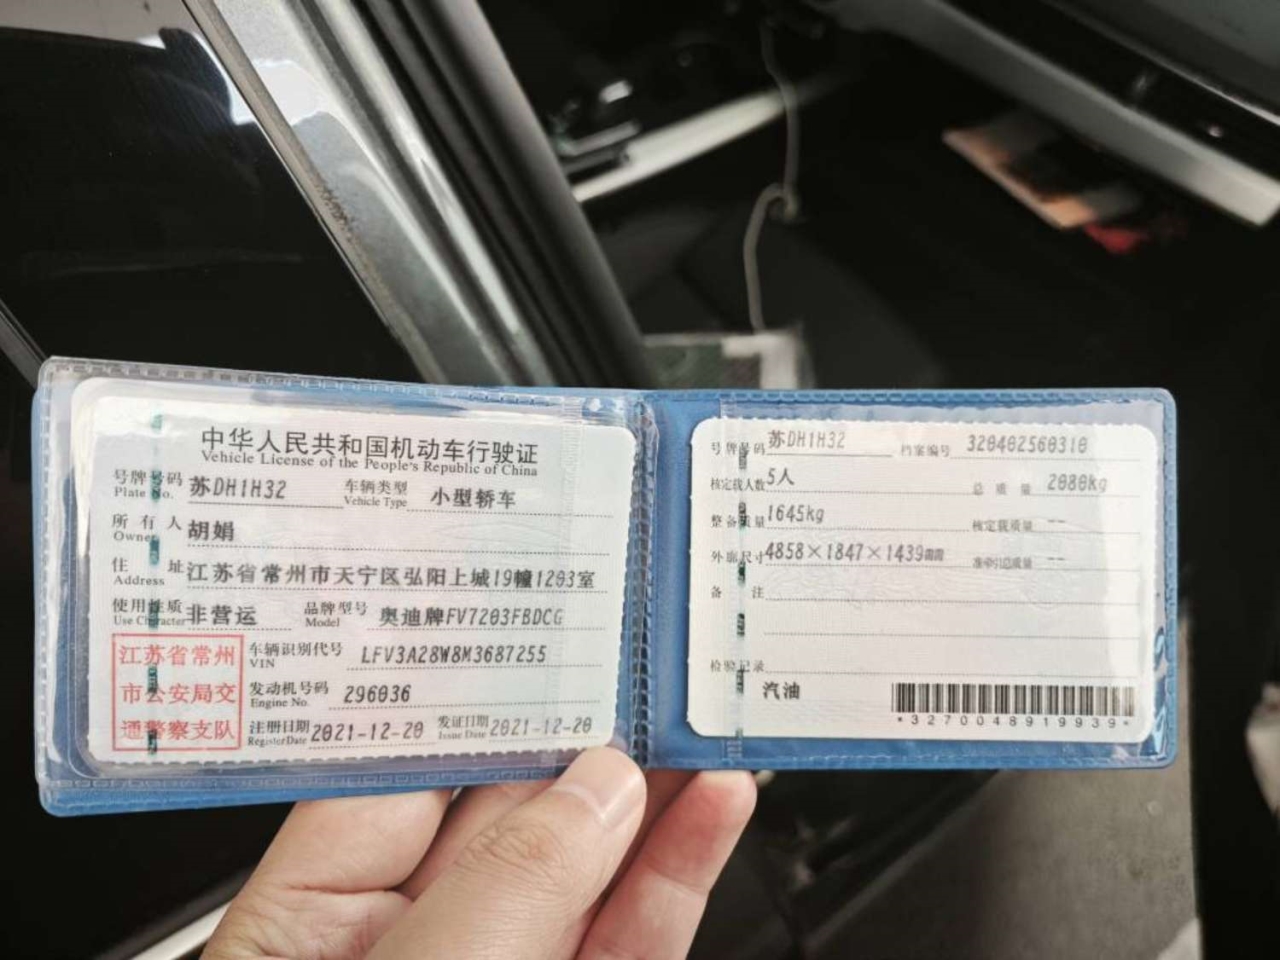 中华人民共和国机动车行驶证
Vehicle License of the People's Republic of China
号牌号码 苏DH1H32 车辆类型 小型轿车
Plate No. Vehicle Type
所有人 胡娟
Owner
住址 江苏省常州市天宁区弘阳上城19幢1203室
Address
使用性质 非营运 品牌型号 奥迪牌FV7203FBDCG
Use Character Model
江苏省常州
市公安局交
通警察支队
车辆识别代号 LFV3A28W8M3687255
VIN
发动机号码 296036
Engine No.
注册日期 2021-12-20 发证日期 2021-12-20
Register Date Issue Date
号牌号码 苏DH1H32 档案编号 320402560310
核定载人数 5人 总质量 2080kg
整备质量 1645kg 核定载质量 --
外廓尺寸 4858×1847×1439mm 准牵引总质量 --
备注
检验记录
汽油
*3270048919939*